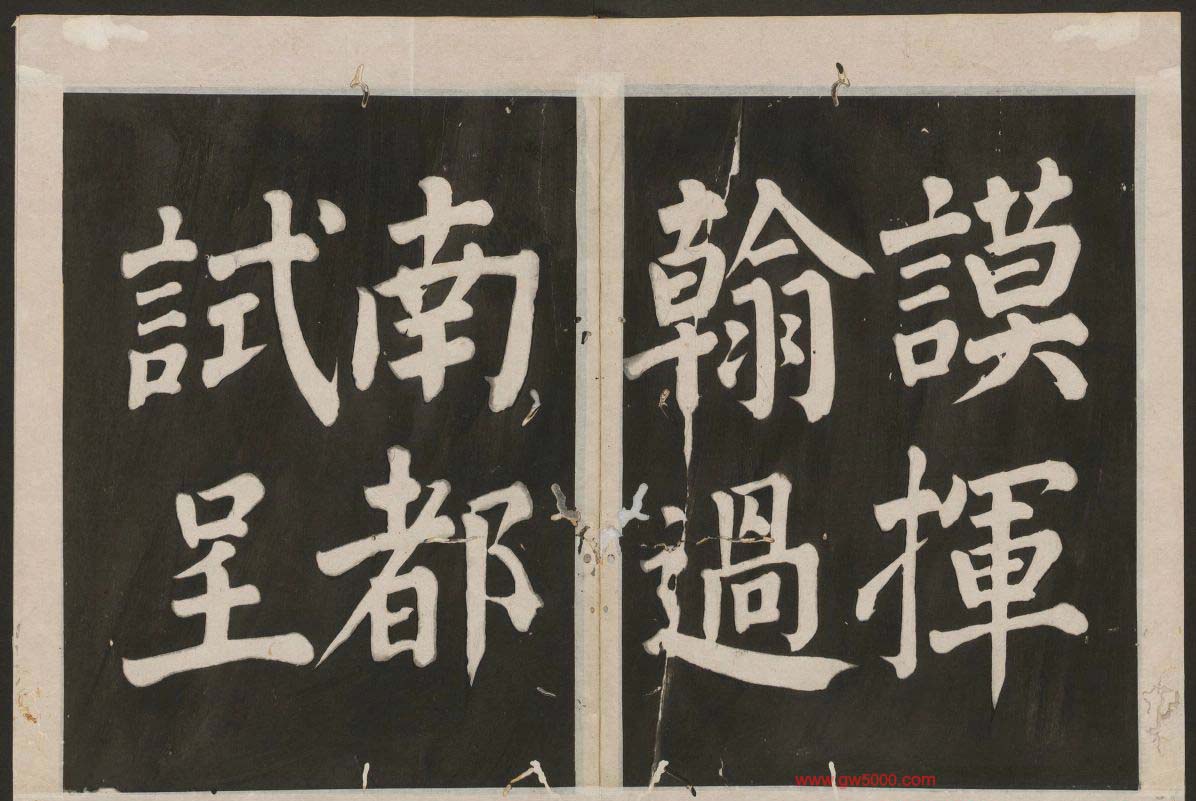 謨揮
翰過
南都
試呈
www.gw5000.com